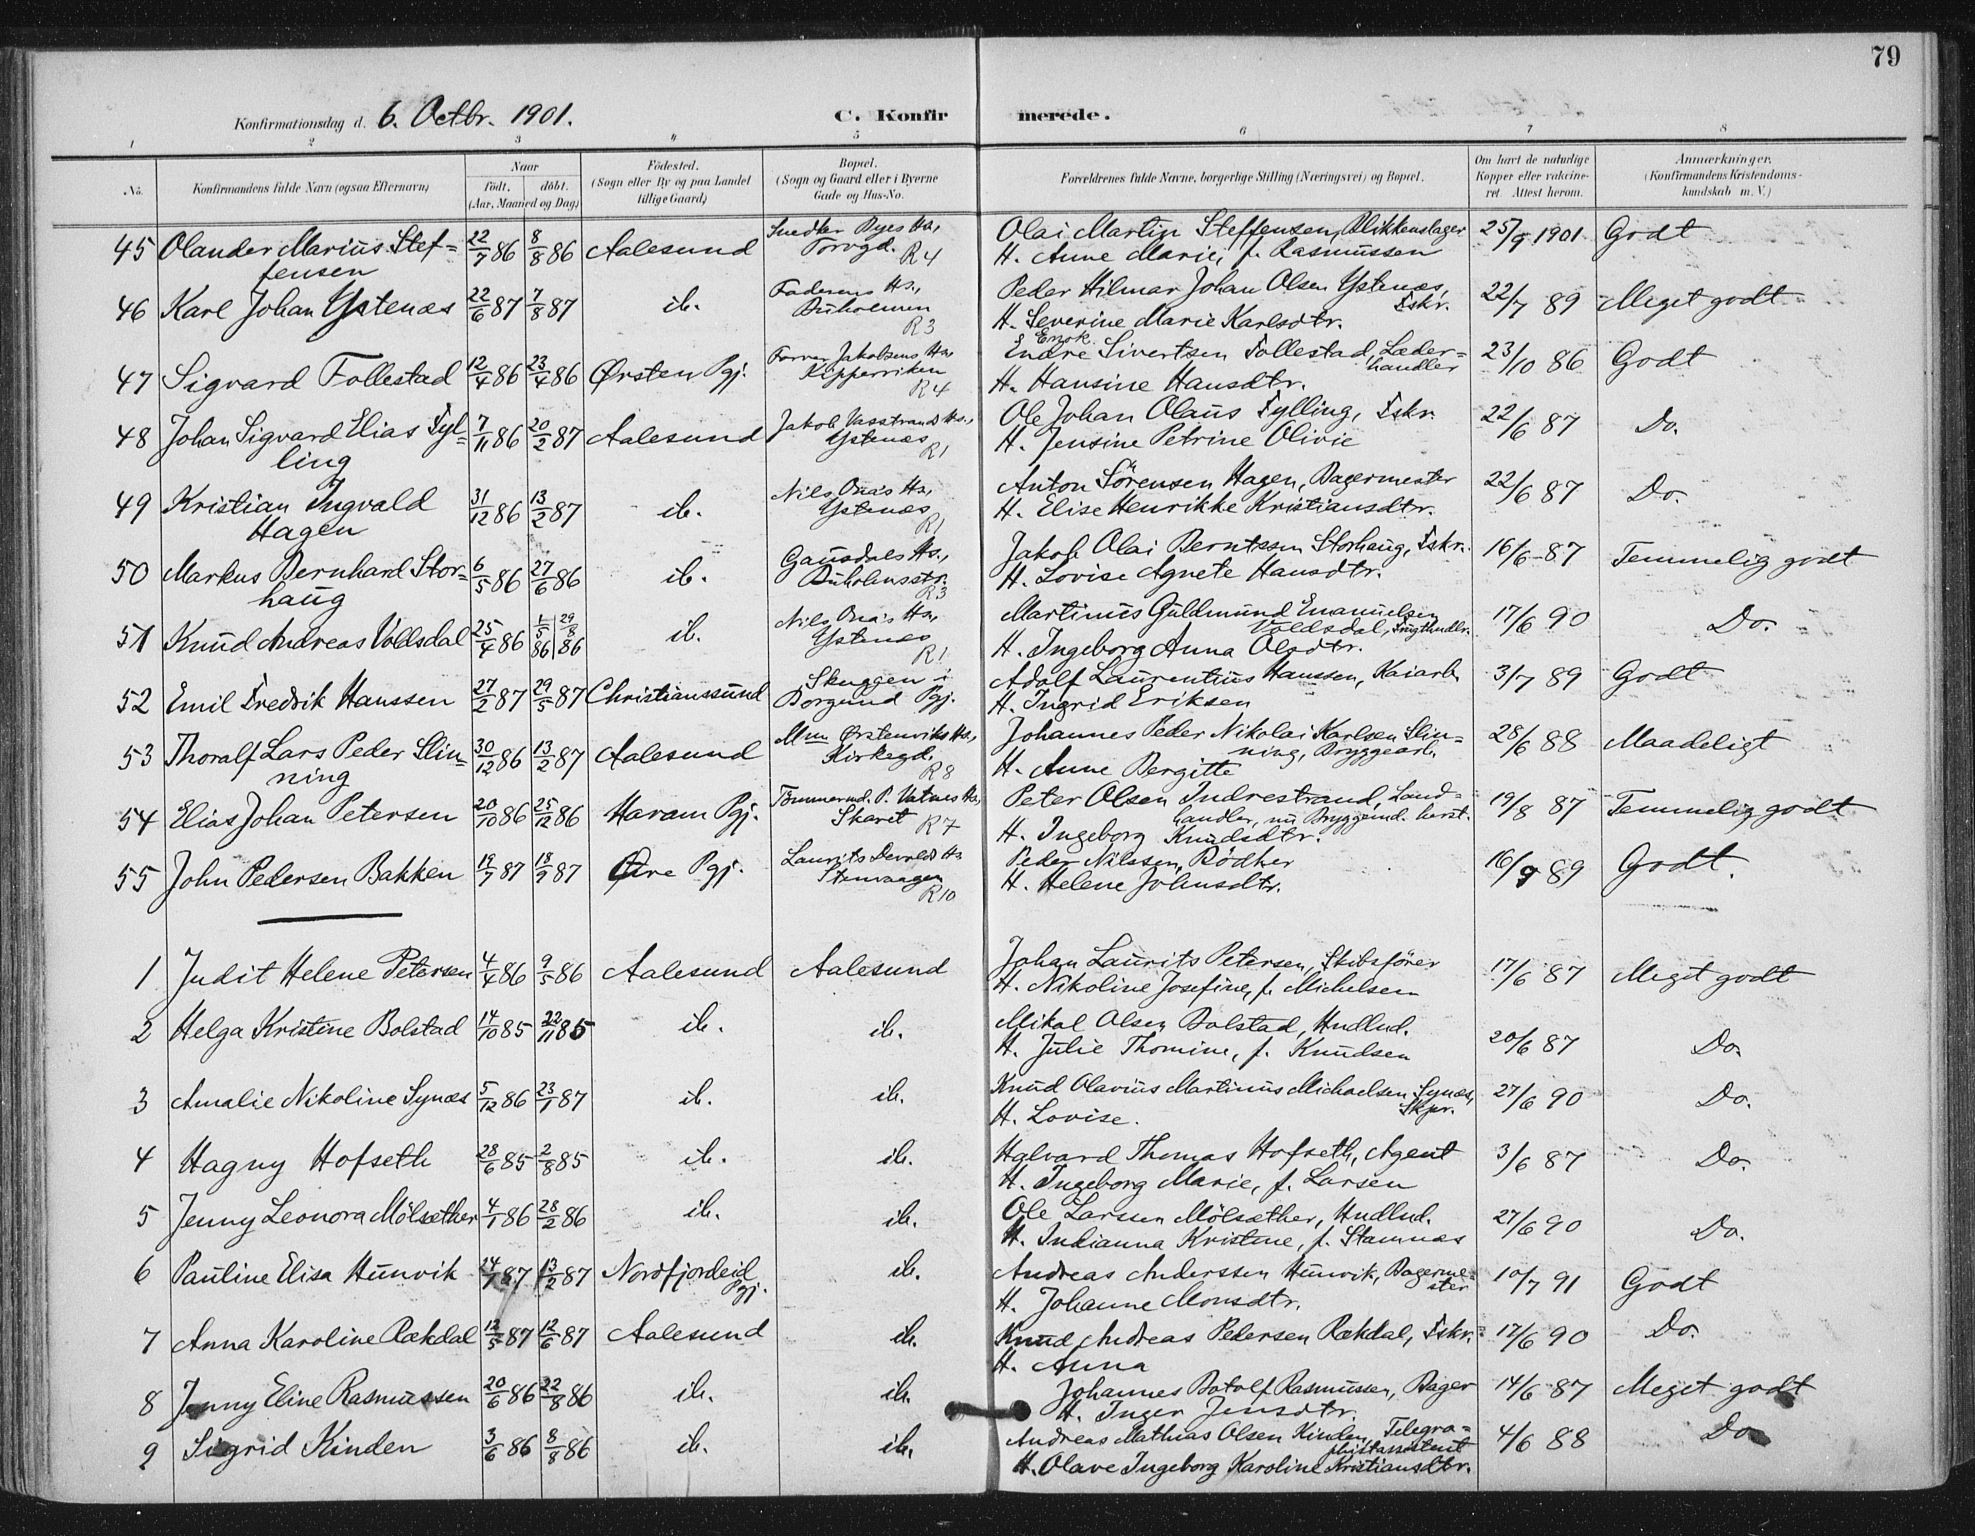 79
Konfirmationsdag d. 6. Octbr. 1901. C. Konfirmerede.
1 2 3 4 5 6 7 8
No. Konfirmandens fulde Navn (ogsaa Efternavn) Naar født. døbt. (Aar, Maaned og Dag) Fødested. (Sogn eller By og paa Landet tillige Gaard) Bopæl. (Sogn og Gaard eller i Byerne Gade og Hus-No. Forældrenes fulde Navne, borgerlige Stilling (Næringsvei) og Bopæl. Om havt de naturlige Kopper eller vakcineret. Attest herom. Anmærkninger. (Konfirmandens Kristendomskundskab m. V.)
45 Olander Marius Stef= 22/7 86 8/8 86 Aalesund Snedker Byes Hs., Olai Martin Steffensen, Blikkenslager 25/9 1901 Godt
fensen Torvgd. R4 H. Anne Marie, f. Rasmussen
46 Karl Johan Ystenæs 22/6 87 7/8 87 ib. Hs., Peder Hilmar Johan Olsen Ystenæs, 22/7 89 Meget godt
Buholmen R3 H. Severine Marie Karlsdtr. Fskr.
47 Sigvard Follestad 12/4 86 23/4 86 Ørsten Pgj. Farver Jakobsens Hs. Enok Endre Sivertsen Follestad, Læder= 23/10 86 Godt
Kipperviken R4 H. Hansine Hansdtr. handler
48 Johan Sigvard Elias Fyl= 7/11 86 20/2 87 Aalesund Jakob Vasstrands Hs., Ole Johan Olaus Fylling, Fskr. 22/6 87 Do.
ling Ystenæs R1 H. Jensine Petrine Olivie
49 Kristian Ingvald 31/12 86 13/2 87 ib. Nils Onas Hs, Anton Sörensen Hagen, Bagermester 22/6 87 Do.
Hagen Ystenæs R1 H. Elise Henrikke Kristiansdtr.
50 Markus Bernhard Stor= 6/5 86 27/6 86 ib. Gausdals Hs., Jakob Olai Berntssen Storhaug, Fskr. 16/6 87 Temmelig godt
haug Buholmsstr. R3 H. Lovise Agnete Hansdtr.
51 Knud Andreas Voldsdal 25/4 86 1/5 86 29/8 86 ib. Nils Onas Hs, Martinus Guldmund Emanuelsen 17/6 90 Do.
Ystenæs R1 Voldsdal, Frugthndlr.
H. Ingeborg Anna Olsdtr.
52 Emil Fredrik Hanssen 27/2 87 29/5 87 Christianssund Skuggen i Adolf Laurentius Hanssen, Kaiarb. 3/7 89 Godt
Borgund Pgj. H. Ingrid Eriksen
53 Thoralf Lars Peder Slin= 30/12 86 13/2 87 Aalesund Mm Ørstenviks Hs., Johannes Peder Nikolai Karlsen Slin= 28/6 88 Maadeligt
ning Kirkegd. R8 ning, Bryggearb.
H. Anne Bergitte
54 Elias Johan Petersen 20/10 86 25/12 86 Haram Pgj. Tömmermd. P. Vatnes Hs, Peter Olsen Indrestrand, Land= 19/8 87 Temmelig godt
Skaret R7 handler, nu Bryggemd. herst.
H. Ingeborg Knudsdtr.
55 John Pedersen Bakken 19/7 87 18/9 87 Øvre Pgj. Laurits Devolds Hs Peder Nilssen, Rödher 16/9 89 Godt.
Stenvaagen R10 H. Helene Johnsdtr.
1 Judit Helene Petersen 4/4 86 9/5 86 Aalesund Aalesund Johan Laurits Petersen, Skibsförer 17/6 87 Meget godt
H. Nikoline Josefine, f. Michelsen
2 Helga Kristine Bolstad 14/10 85 22/11 85 ib. ib. Mikal Olsen Bolstad, Hndlnd. 20/6 87 Do.
H. Julie Thomine, f. Knudsen
3 Amalie Nikoline Synæs 5/12 86 23/1 87 ib. ib. Knud Olavius Martinus Michaelsen Synæs, 27/6 90 Do.
H. Lovise. Skpr.
4 Hagny Hofseth 28/6 85 2/8 85 ib. ib. Halvard Thomas Hofseth, Agent 3/6 87 Do.
H. Ingeborg Marie, f. Larsen
5 Jenny Leonora Mölsæther 4/1 86 28/2 86 ib. ib. Ole Larssen Mölsæther, Hndlnd. 27/6 90 Do.
H. Indianna Kristine, f. Stamnæs
6 Pauline Elisa Hunvik 14/1 87 13/2 87 Nordfjordeid ib. Andreas Anderssen Hunvik, Bagerme= 10/7 91 Godt
Pgj. H. Johanne Monsdtr. ster
7 Anna Karoline Rækdal 12/5 87 12/6 87 Aalesund ib. Knud Andreas Pedersen Rækdal, Fskr. 17/6 90 Do.
H. Anna
8 Jenny Eline Rasmussen 20/6 86 22/8 86 ib. ib. Johannes Botolf Rasmussen, Bager 14/6 87 Meget godt
H. Inger Jensdtr.
9 Sigrid Kinden 3/6 86 8/8 86 ib. ib. Andreas Mathias Olsen Kinden, Telegra= 4/6 88 Do
phistassistent
H. Olave Ingeborg Karoline Kristiansdtr.